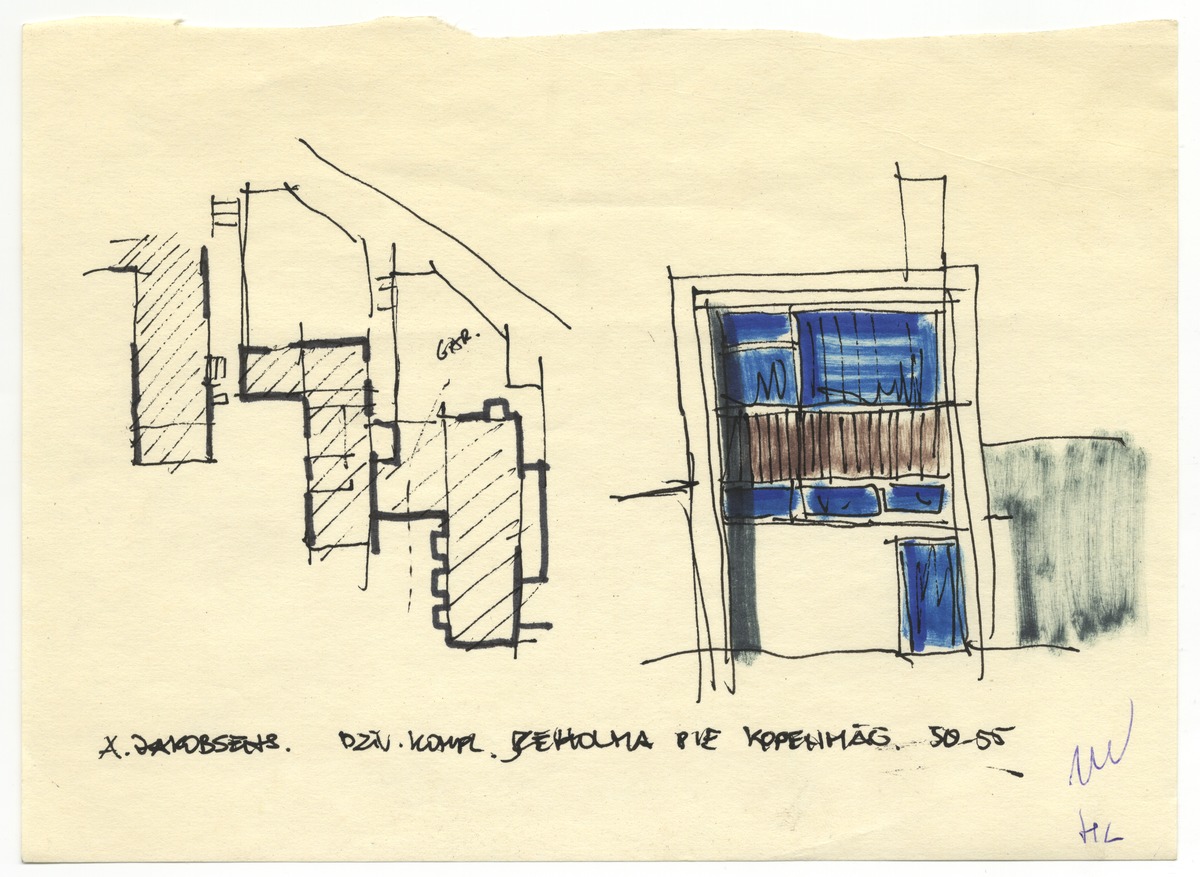 GAR.
A. JAKOBSENS. DZĪV. KOMPL. BEHOLMA PIE KOPENHĀG. 50-55
HL